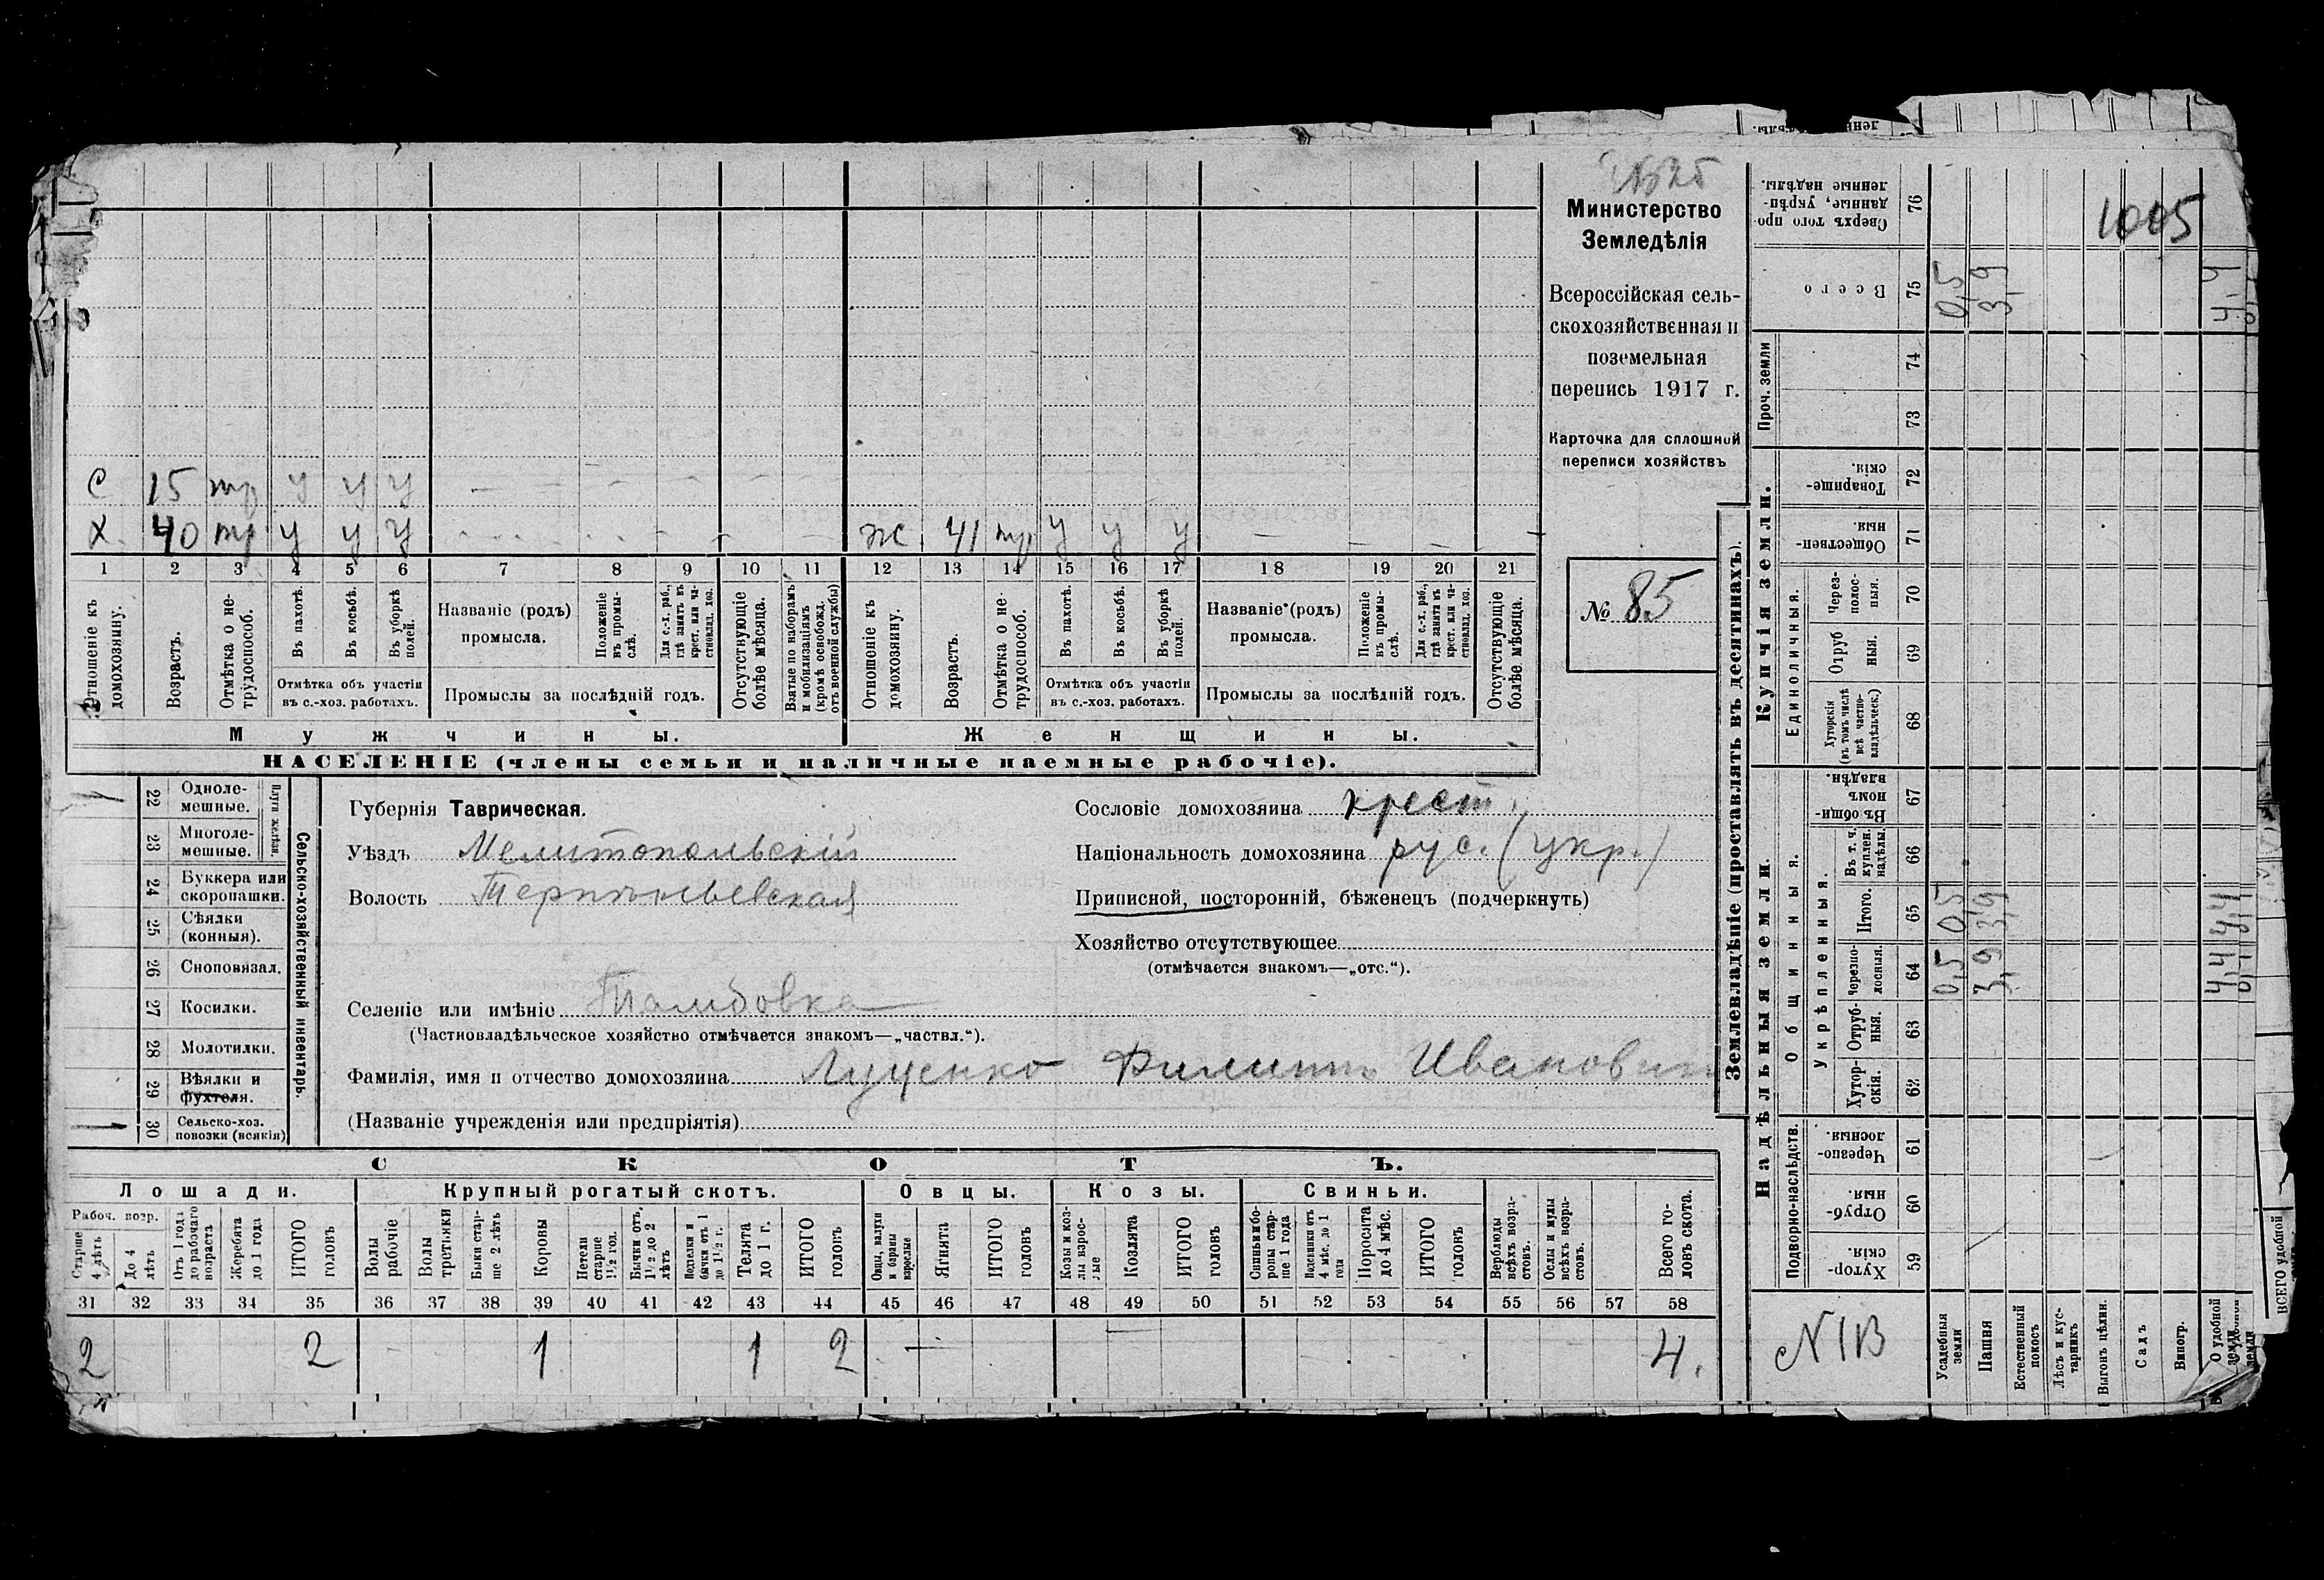 Министерство
Земледѣлія
Всероссійская сель-
скохозяйственная и
поземельная
перепись 1917 г.
Карточка для сплошной
переписи хозяйствъ
№ 85
С 15 тр у у у
Х. 40 тр у у у
ж. 41 тр у у у
1 2 3 4 5 6 7 8 9 10 11 12 13 14 15 16 17 18 19 20 21
Отношеніе къ домохозяину.
Возрастъ.
Отмѣтка о не-трудоспособ.
Въ пахотѣ.
Въ косьбѣ.
Въ уборкѣ полей.
Отмѣтка объ участіи
въ с.-хоз. работахъ.
Названіе (родъ)
промысла.
Положеніе въ промы-слѣ.
Для с.-х. раб., гдѣ занятъ въ крест. или ча-стновлад. хоз.
Промыслы за послѣдній годъ.
Отсутствующіе болѣе мѣсяца.
Взятые по наборамъ и мобилизаціямъ (кромѣ освобожд. отъ военной службы)
Отношеніе къ домохозяину.
Возрастъ.
Отмѣтка о не трудоспособ.
Въ пахотѣ.
Въ косьбѣ.
Въ уборкѣ полей.
Отмѣтка объ участіи
въ с.-хоз. работахъ.
Названіе (родъ)
промысла.
Положеніе въ промы-слѣ.
Для с.-х. раб., гдѣ занята въ крест. или ча-стновлад. хоз.
Промыслы за послѣдній годъ.
Отсутствующіе болѣе мѣсяца.
Мужчины.
Женщины.
НАСЕЛЕНІЕ (члены семьи и наличные наемные рабочіе).
Сельско-хозяйственный инвентарь.
Плуги желѣзн.
22 Одноле-мешные.
23 Многоле-мешные.
24 Буккера или скоропашки.
25 Сѣялки (конныя).
26 Сноповязал.
27 Косилки.
28 Молотилки.
29 Вѣялки и фухтеля.
30 Сельско-хоз. повозки (всякія)
Губернія Таврическая.
Уѣздъ Мелитопольскій
Волость Терпѣньевская
Селеніе или имѣніе Тамбовка
(Частновладѣльческое хозяйство отмѣчается знакомъ—„частвл.“).
Фамилія, имя и отчество домохозяина Луценко Филиппъ Иванович
(Названіе учрежденія или предпріятія)
Сословіе домохозяина крест.
Національность домохозяина рус. (укр.)
Приписной, посторонній, бѣженецъ (подчеркнуть)
Хозяйство отсутствующее
(отмѣчается знакомъ—„отс.“).
СКОТЪ.
Лошади.
Крупный рогатый скотъ.
Овцы.
Козы.
Свиньи.
Рабоч. возр.
Старше 4 лѣтъ
До 4 лѣтъ
Отъ 1 года до рабочаго возраста
Жеребята до 1 года
ИТОГО головъ
Волы рабочіе
Волы третьяки
Быки стар-ше 2 лѣтъ
Коровы
Нетели старше 1½ год.
Бычки отъ 1½ до 2 лѣтъ
Подтелки и бычки отъ 1 до 1½ г.
Телята до 1 г.
ИТОГО головъ
Овцы, валухи и бараны взрослые
Ягнята
ИТОГО головъ
Козы и коз-лы взрос-лые
Козлята
ИТОГО головъ
Свиньи и бо-ровы стар-ше 1 года
Подсвинки отъ 4 мѣс. до 1 года
Поросята до 4 мѣс.
ИТОГО головъ
Верблюды всѣхъ возра-стовъ.
Ослы и мулы всѣхъ возра-стовъ.
Всего го-ловъ скота.
31 32 33 34 35 36 37 38 39 40 41 42 43 44 45 46 47 48 49 50 51 52 53 54 55 56 57 58
2 2 1 1 2 4.
Землевладѣніе (проставлять въ десятинахъ).
Надѣльныя земли.
Купчія земли.
Проч. земли
Подворно-наслѣдств.
Общинныя.
Укрѣпленныя.
Единоличныя.
59 Хутор-скія.
60 Отруб-ныя.
61 Черезпо-лосныя.
62 Хутор-скія.
63 Отруб-ныя.
64 Черезпо-лосныя. 0,5 3,9 4,4
65 Итого. 0,5 3,9 4,4
66 Въ т. ч. куплен. надѣлы.
67 Въ общи-номъ владѣн.
68 Хуторскія (въ томъ числѣ всѣ частно-владѣльческ.)
69 Отруб ныя.
70 Через-полос-ныя.
71 Обществен-ныя.
72 Товарище-скія.
73
74
75 Всего 0,5 3,9 4,4
76 Сверхъ того про-данные, укрѣп-ленные надѣлы.
1005
N 1B
Усадебныя земли
Пашня
Естественный покосъ
Лѣсъ и кус-тарникъ
Выгонъ цѣлин.
Садъ
Виногр.
О удобной земли
ВСЕГО удобной